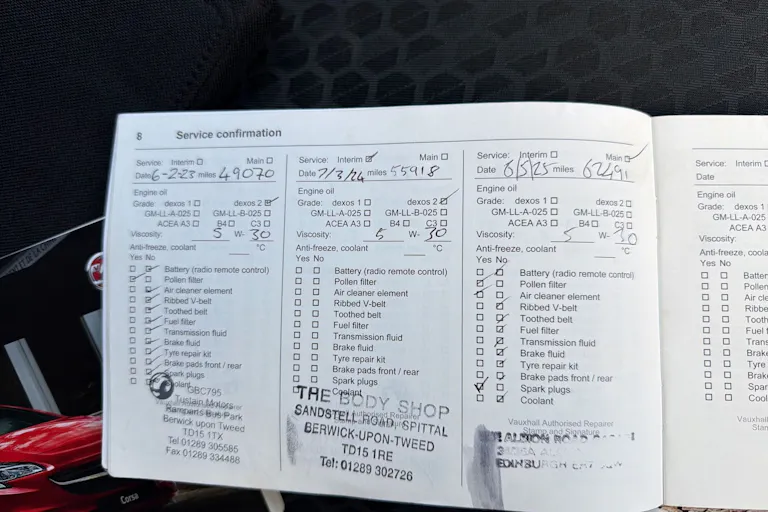 8 Service confirmation
Service: Interim Main
Date 6-2-23 miles 49070
Engine oil
Grade: dexos 1 dexos 2
GM-LL-A-025 GM-LL-B-025
ACEA A3 B4 C3
Viscosity: 5 W- 30
Anti-freeze, coolant °C
Yes No
Battery (radio remote control)
Pollen filter
Air cleaner element
Ribbed V-belt
Toothed belt
Fuel filter
Transmission fluid
Brake fluid
Tyre repair kit
Brake pads front / rear
Spark plugs
Coolant
GBC795
Tustain Motors
Berwick upon Tweed
TD15 1TX
Tel 01289 305585
Fax 01289 334488
Service: Interim Main
Date 7/3/24 miles 55918
Engine oil
Grade: dexos 1 dexos 2
GM-LL-A-025 GM-LL-B-025
ACEA A3 B4 C3
Viscosity: 5 W- 30
Anti-freeze, coolant °C
Yes No
Battery (radio remote control)
Pollen filter
Air cleaner element
Ribbed V-belt
Toothed belt
Fuel filter
Transmission fluid
Brake fluid
Tyre repair kit
Brake pads front / rear
Spark plugs
Coolant
THE BODY SHOP
SANDSTELL ROAD, SPITTAL
BERWICK-UPON-TWEED
TD15 1RE
Tel: 01289 302726
Service: Interim Main
Date 6/5/25 miles 62491
Engine oil
Grade: dexos 1 dexos 2
GM-LL-A-025 GM-LL-B-025
ACEA A3 B4 C3
Viscosity: 5 W- 30
Anti-freeze, coolant °C
Yes No
Battery (radio remote control)
Pollen filter
Air cleaner element
Ribbed V-belt
Toothed belt
Fuel filter
Transmission fluid
Brake fluid
Tyre repair kit
Brake pads front / rear
Spark plugs
Coolant
Vauxhall Authorised Repairer
Stamp and Signature
ALBION ROAD
EDINBURGH
Service: Interim
Date
Engine oil
Grade: dexos 1
GM-LL-A-025
ACEA A3
Viscosity:
Anti-freeze,
Yes No
Corsa